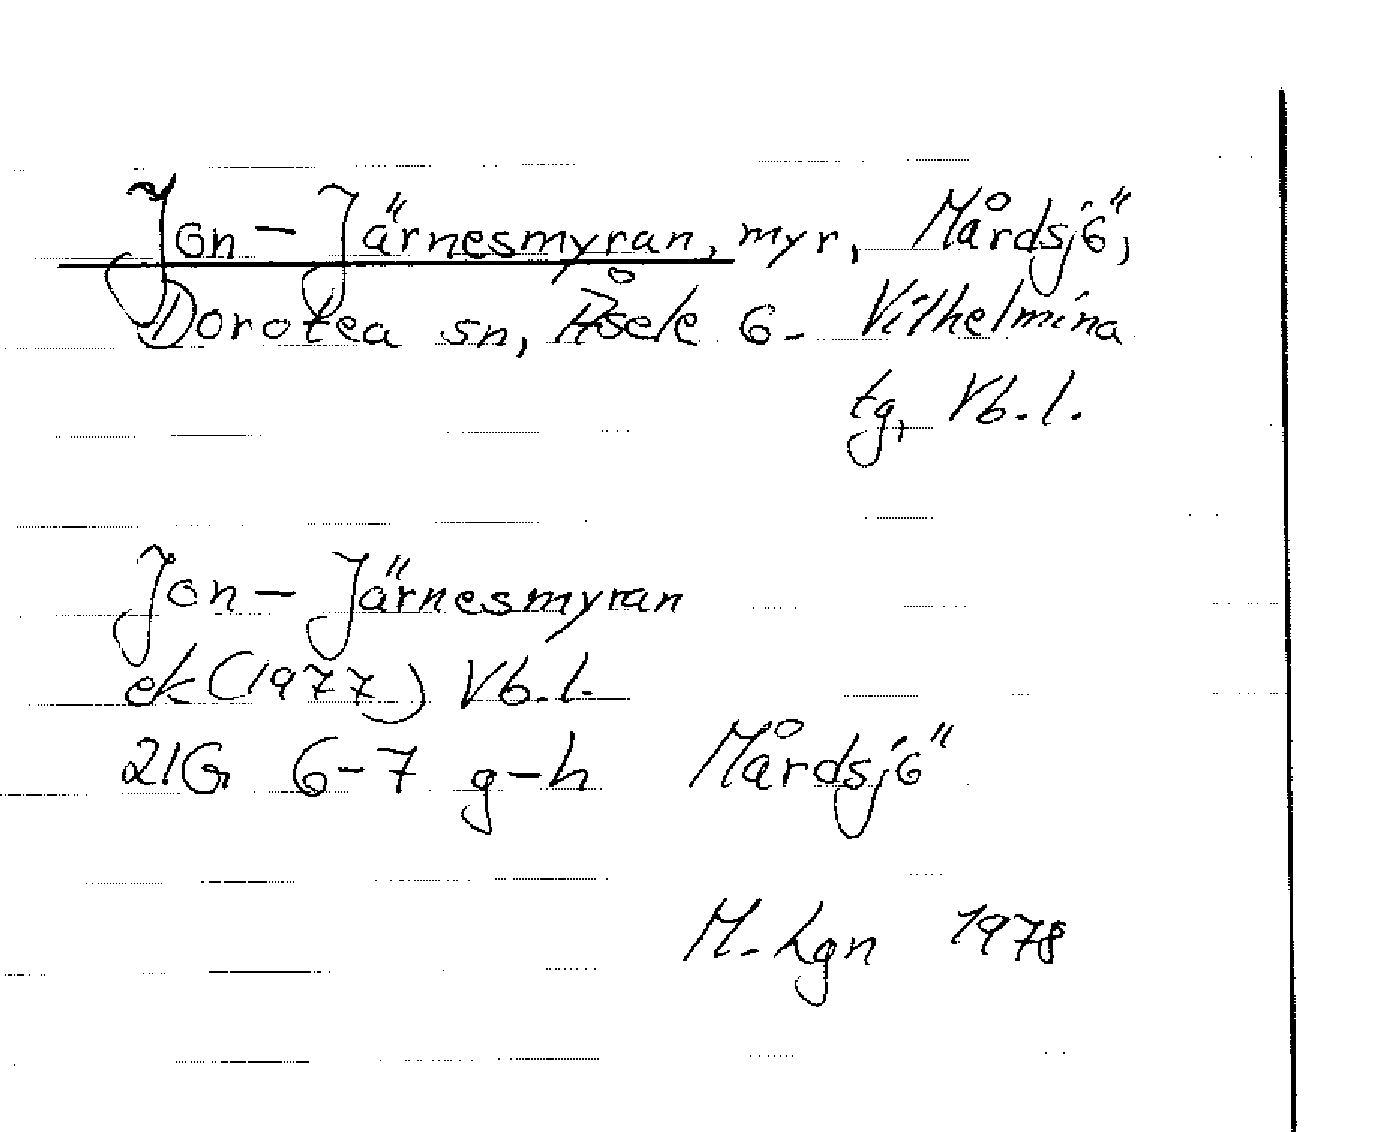 Jon-Järnesmyran, myr, Mårdsjö,
Dorotea sn, Åsele o. Vilhelmina
tg, Vb. l.
Jon-Järnesmyran
ek (1977) Vb. l.
21G 6-7 g-h Mårdsjö
M. Lgn 1978